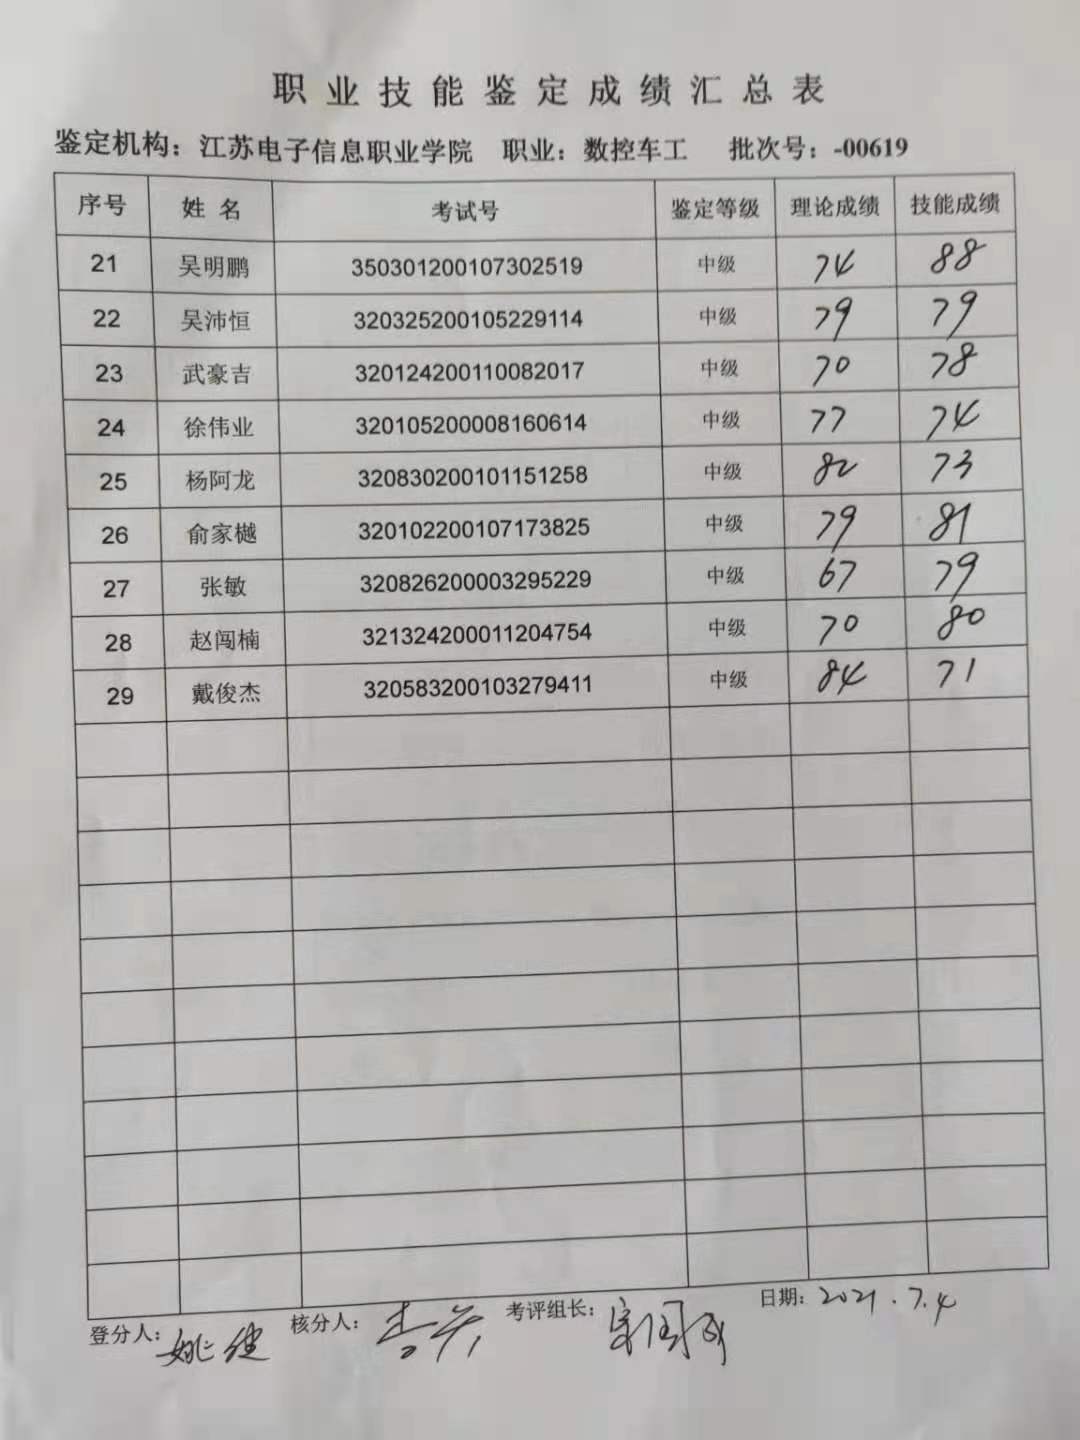 职业技能鉴定成绩汇总表
鉴定机构：江苏电子信息职业学院 职业：数控车工 批次号：-00619
序号 姓名 考试号 鉴定等级 理论成绩 技能成绩
21 吴明鹏 350301200107302519 中级 74 88
22 吴沛恒 320325200105229114 中级 79 79
23 武豪吉 320124200110082017 中级 70 78
24 徐伟业 320105200008160614 中级 77 74
25 杨阿龙 320830200101151258 中级 82 73
26 俞家樾 320102200107173825 中级 79 81
27 张敏 320826200003295229 中级 67 79
28 赵闯楠 321324200011204754 中级 70 80
29 戴俊杰 320583200103279411 中级 84 71
登分人： 核分人： 考评组长： 日期：2021.7.4